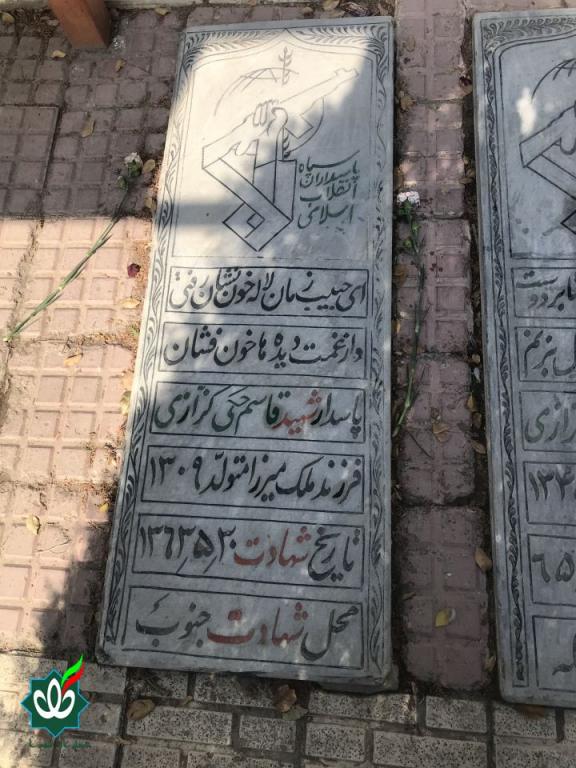 سپاه
پاسداران
انقلاب
اسلامی
ای حبیب ز مان لاله خون نشان رفتی
داغمت دیده ها خون فشان
پاسدار شهید قاسم حکی کزازی
فرزند ملک میرزا متولد ۱۳۰۹
تاریخ شهادت ۱۳۶۳٫۵٫۲۰
محل شهادت جنوب
دوست
بزم
کزازی